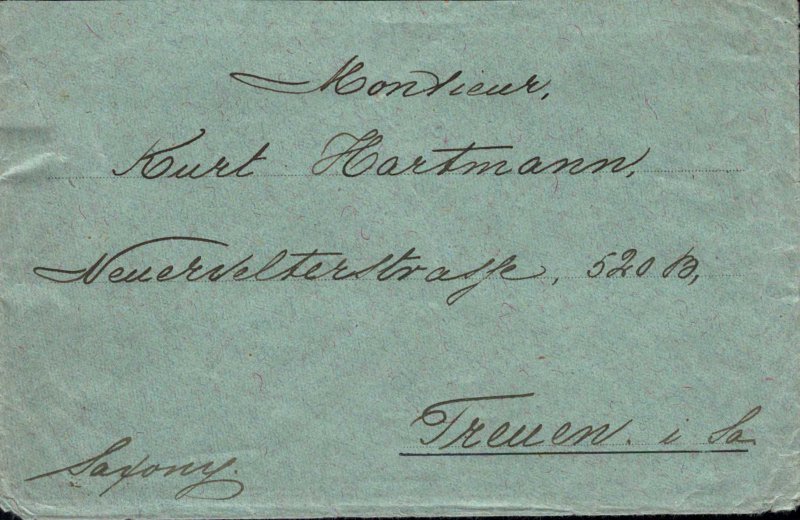 Monsieur,
Kurt Hartmann,
Neuerwelterstrasse, 520 B,
Treuen. i Sa
Saxony.